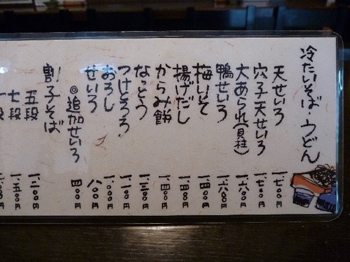 冷たいそば・うどん
天せいろ 一、七〇〇円
穴子天せいろ 一、七〇〇円
大あられ(貝柱) 一、六〇〇円
鴨せいろ 一、六〇〇円
梅いそ 一、四〇〇円
揚げだし 一、四〇〇円
からみ餅 一、四〇〇円
なっとう 一、三〇〇円
つけとろろ 一、二〇〇円
おろし 一、一〇〇円
せいろ 八〇〇円
◎追加せいろ 四〇〇円
割子そば
五段 一、二〇〇円
七段 一、五〇〇円